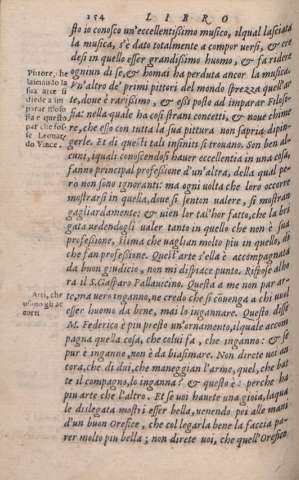 154 LIBRO
sto io conosco un'eccellentissimo musico, ilqual lasciata
la musica, s'è dato totalmente a compor versi, & cre
desi in quello esser grandissimo huomo, & fa ridere
ogniun di se, & homai ha perduta ancor la musica.
Vn'altro de' primi pittori del mondo sprezza quell'ar
te, dove è rarissimo, & essi posto ad imparar Filoso-
fia: nella quale ha così strani concetti, & nove chime
re, che esso con tutta la sua pittura non sapria dipin-
gerle. Et di questi tali infiniti si trovano. Son ben al-
cuni, iquali conoscendosi haver eccellentia in una cosa,
fanno principal professione d'un'altra, della qual pe-
rò non sono ignoranti: ma ogni volta che loro occorre
mostrarsi in quella, dove si senton valere, si mostran
gagliardamente; & vien lor tal'hor fatto, che la bri
gata vedendogli valer tanto in quello che non è sua
professione, stima che vaglian molto piu in quello, di
che fan professione. Quest'arte s'ella è accompagnata
da buon giudicio, non mi dispiace punto. Rispose alho
ra il S. Gasparo Pallavicino. Questa a me non par ar-
te, ma vero inganno, ne credo che si convenga a chi vuol
esser huomo da bene, mai lo ingannare. Questo disse
M. Federico è piu presto un'ornamento, ilquale accom
pagna quella cosa, che colui fa, che inganno: & se
pur è inganne, non è da biasimare. Non direte voi an
cora, che di dui, che maneggian l'arme, quel, che bat
te il compagno, lo inganna? & questo è: perche ha
piu arte che l'altro. Et se voi havete una gioia, laqua
le dislegata mostri esser bella, venendo poi alle mani
d'un buon Orefice, che col legarla bene la faccia pa-
rer molto piu bella; non direte voi, che quell'Orefice
Pittore, che
lasciando la
sua arte si
diede a im-
parar filoso-
fia e questo
par che fos-
se Leonar-
do Vince.
Arti, che
usono gli ac
corti